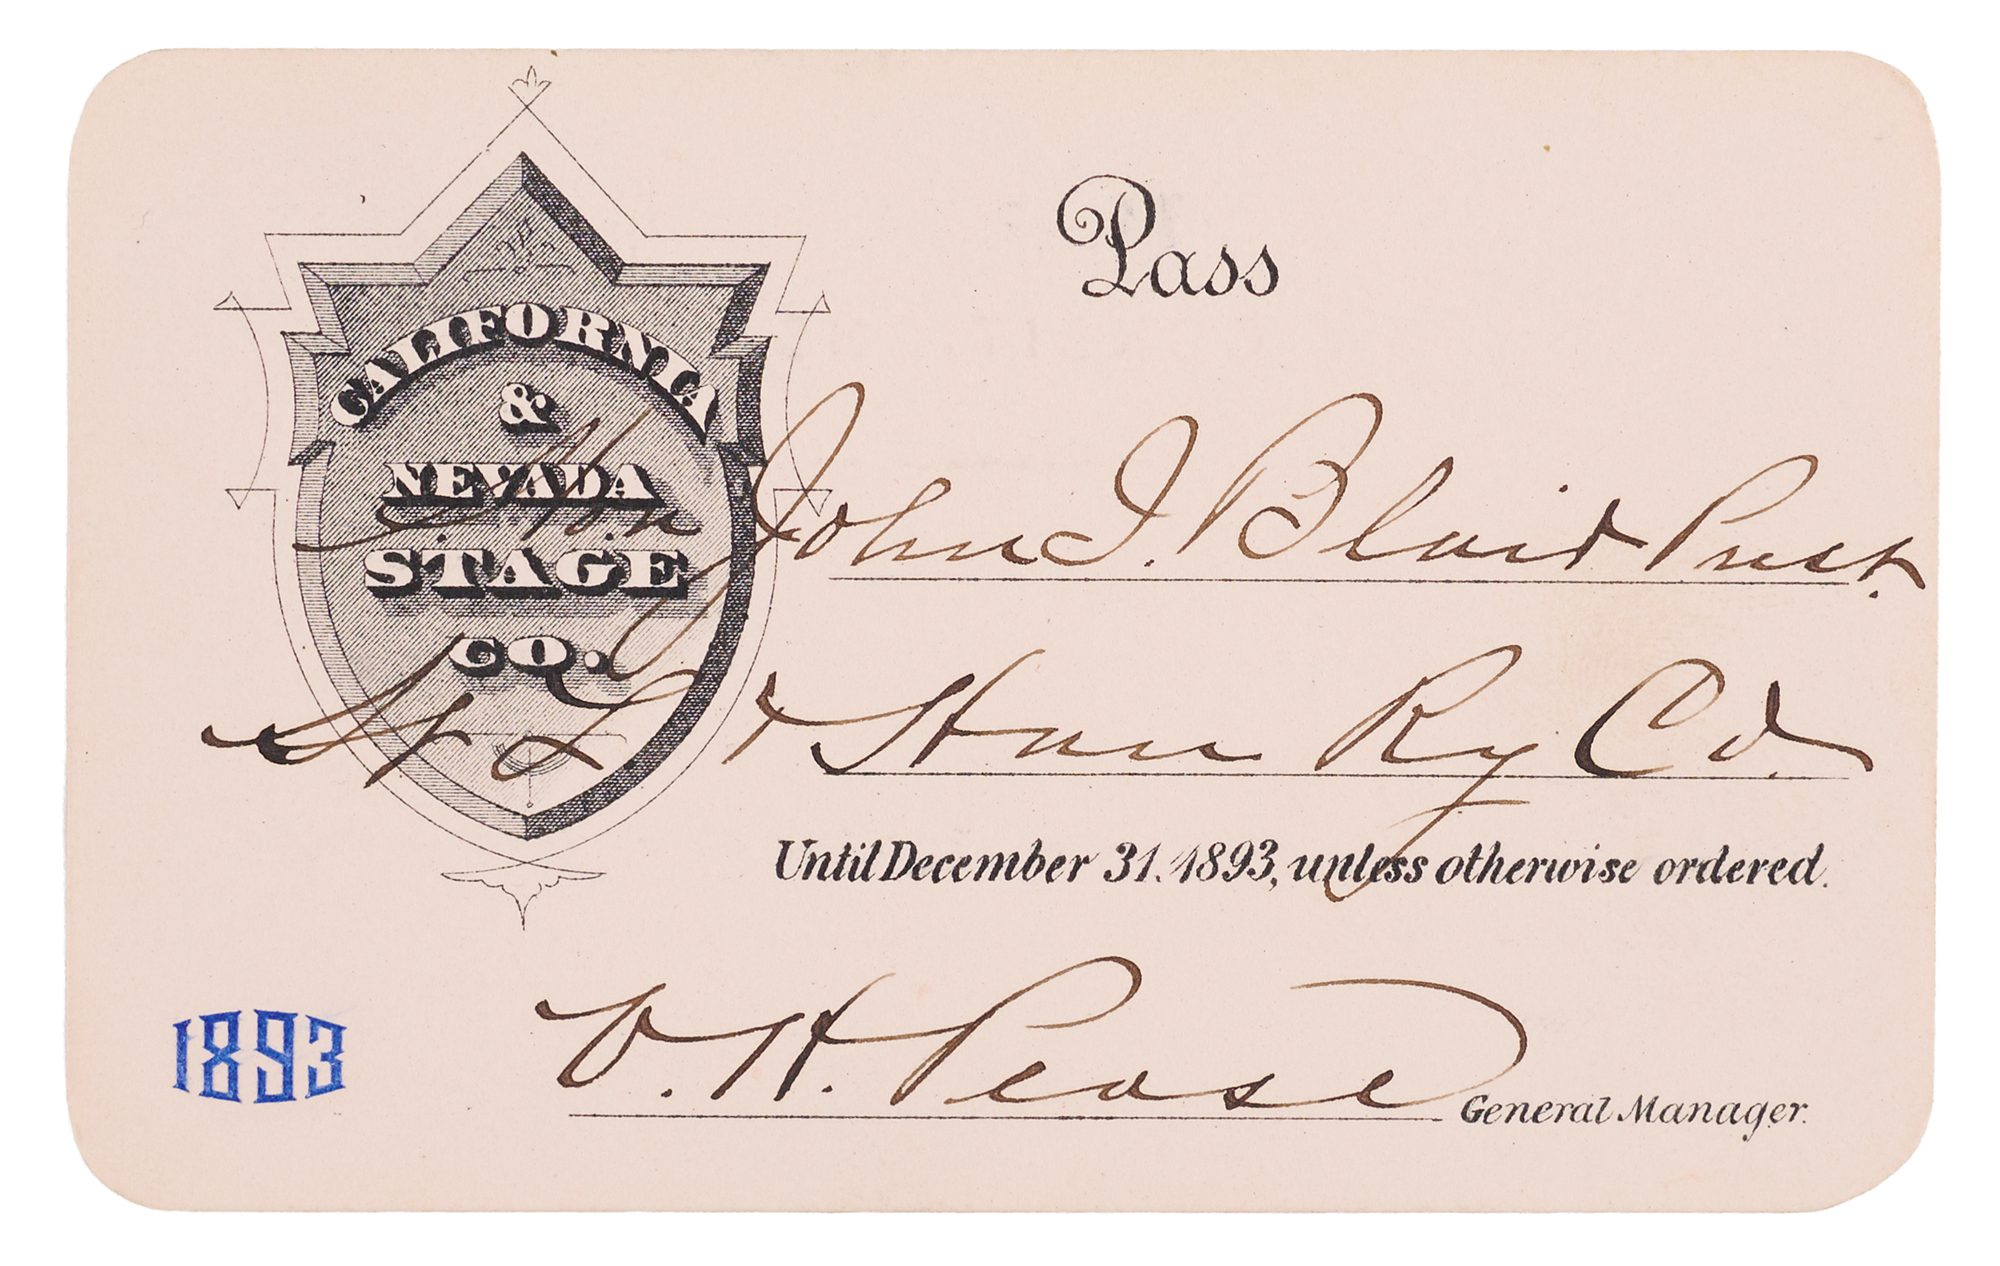 Pass
CALIFORNIA
&
NEVADA
STAGE
CO.
Hon John I. Blair Prest.
St L & Han Ry Co.
Until December 31. 1893, unless otherwise ordered.
1893
H. Pease General Manager.